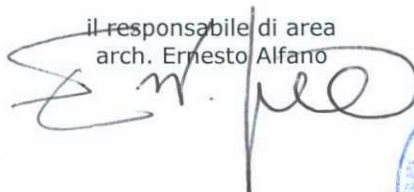 il responsabile di area
arch. Ernesto Alfano